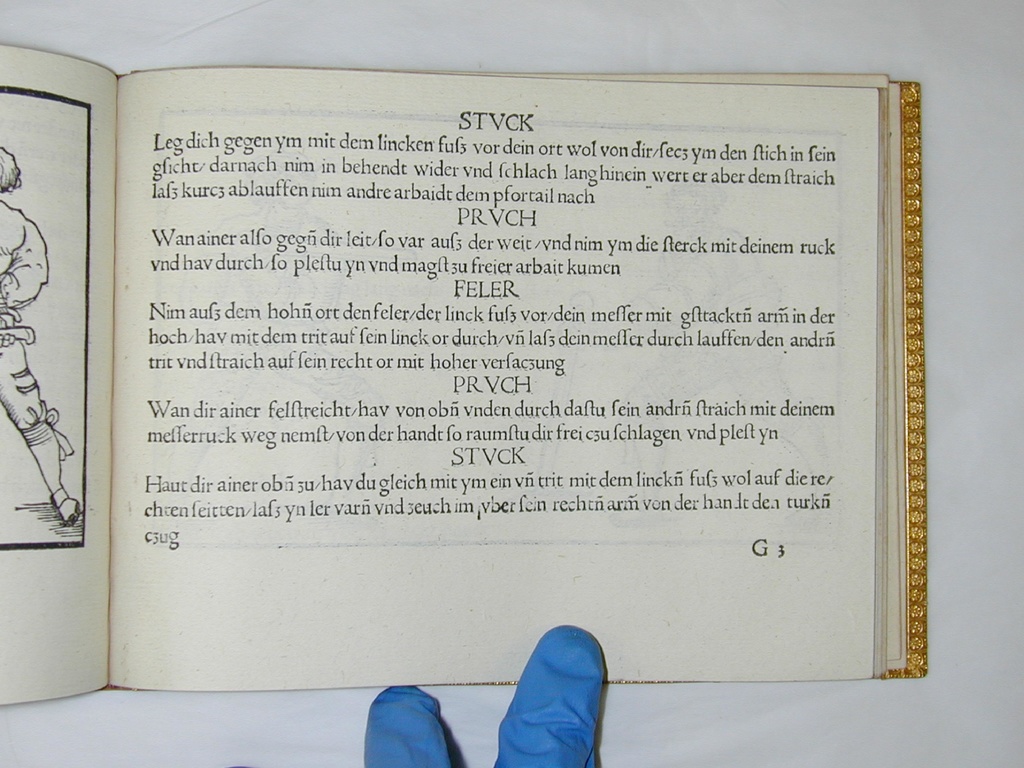 STVCK
Leg dich gegen ym mit dem lincken fuſʒ vor dein ort wol von dir/ſecʒ ym den ſtich in ſein
gſicht/ darnach nim in behendt wider vnd ſchlach lang hinein wert er aber dem ſtraich
laſʒ kurcʒ ablauffen nim andre arbaidt dem pfortail nach
PRVCH
Wan ainer alſo gegñ dir leit/ſo var auſʒ der weit/vnd nim ym die ſterck mit deinem ruck
vnd hav durch/ſo pleſtu yn vnd magſt ʒu freier arbait kumen
FELER
Nim auſʒ dem hohñ ort den feler/der linck fuſʒ vor/dein meſſer mit gſttacktñ arm̃ in der
hoch/hav mit dem trit auf ſein linck or durch/vñ laſʒ dein meſſer durch lauffen/den andrñ
trit vnd ſtraich auf ſein recht or mit hoher verſacʒung
PRVCH
Wan dir ainer felſtreicht/hav von obñ vnden durch daſtu ſein andrñ ſtraich mit deinem
meſſerruck weg nemſt/von der handt ſo raumſtu dir frei cʒu ſchlagen vnd pleſt yn
STVCK
Haut dir ainer obñ ʒu/hav du gleich mit ym ein vñ trit mit dem linckñ fuſʒ wol auf die re/
chten ſeitten/laſʒ yn ler varñ vnd ʒeuch im yber ſein rechtñ arm̃ von der handt den turkñ
cʒug
G 3